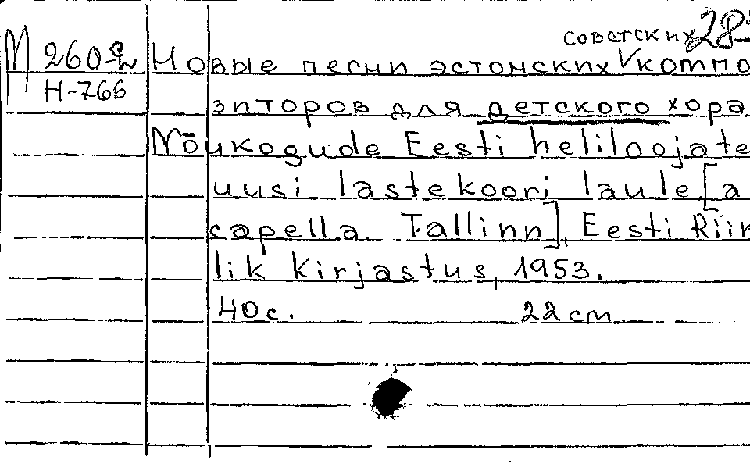 советских 28
М 260 Новые песни эстонских V компо
Н-766
зиторов для детского хора
Nõukogude Eesti heliloojate
uusi lastekoori laule [a
capella. Tallinn], Eesti Riik
lik Kirjastus, 1953.
40 с. 22 cm